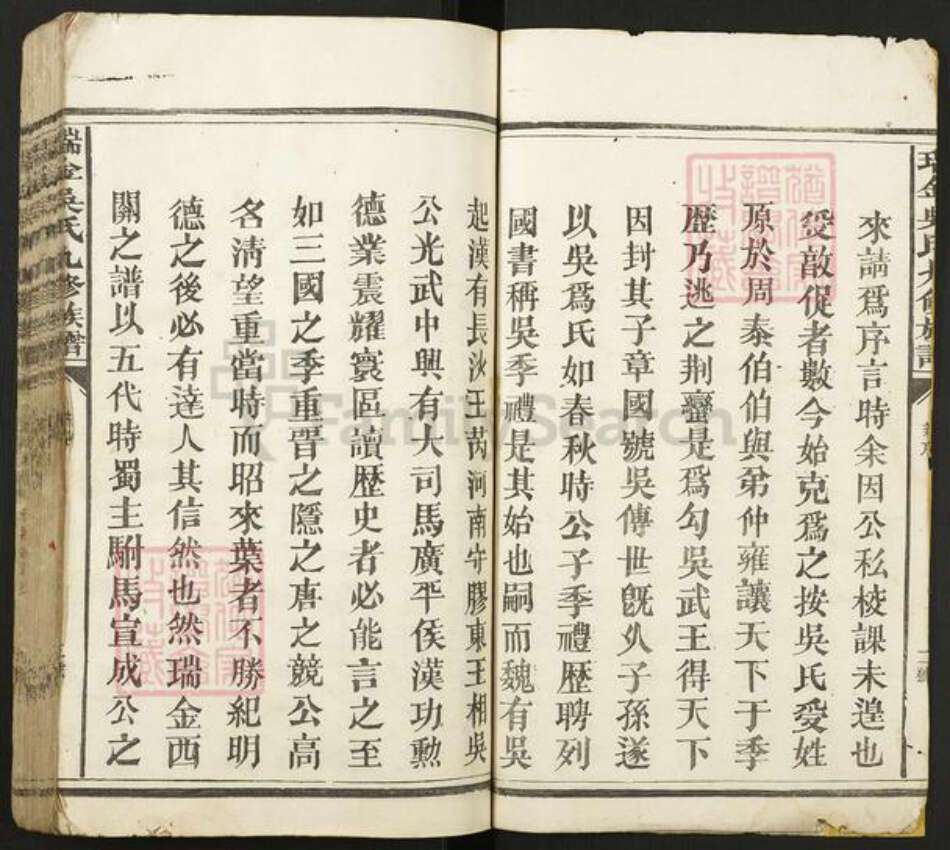 來請爲序言時余因公私校課未遑也
受敵促者數今始克爲之按吳氏受姓
原於周泰伯伯與弟仲雍讓天下于季
歷乃逃之荆蠻是爲勾吳武王得天下
因封其子章國號吳傳世旣久子孫遂
以吳爲氏如春秋時公子季禮歷聘列
國書稱吳季禮是其始也嗣而魏有吳
起漢有長沙王芮河南守膠東王相吳
公光武中興有大司馬廣平侯漢功勲
德業震耀寰區讀歷史者必能言之至
如三國之季重晋之隱之唐之競公高
名淸望重當時而昭來葉者不勝紀明
德之後必有達人其信然也然瑞金西
關之譜以五代時蜀主駙馬宣成公之
瑞金吳氏九修族譜
FamilySearch